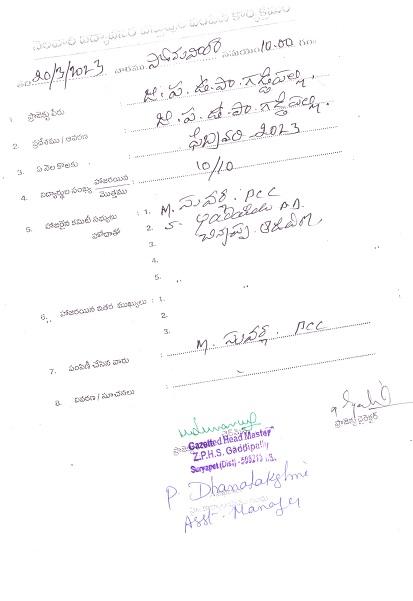 నెలవారీ విద్యార్థుల
20/3/2023 వారము సోమవారం సమయం 10.00 గం
1. ప్రాజెక్టు పేరు జి. ప. ఉ. పా. గడ్డిపల్లి,
2. ప్రదేశము / ఆవరణ జి. ప. ఉ. పా. గడ్డిపల్లి,
3. ఏ నెల కొలకు ఫిబ్రవరి 2023
4. విద్యార్థుల సంఖ్య హాజరయిన / మొత్తము 10/10
5. హాజరైన కమిటీ సభ్యులు హోదాతో : 1. M. సువర్ణ. PCC
2. P.D.
3.
4.
5. ,,
6. హాజరయిన ఇతర ముఖ్యులు : 1. ,,
2.
3.
7. పంపిణీ చేసిన వారు M. సువర్ణ. PCC
8. వివరణ / సూచనలు
ప్రాజెక్టు డైరెక్టర్
Gazetted Head Master
Z.P.H.S. Gaddipally
Suryapet (Dist)
P. Dhanalakshmi
Asst. Manager